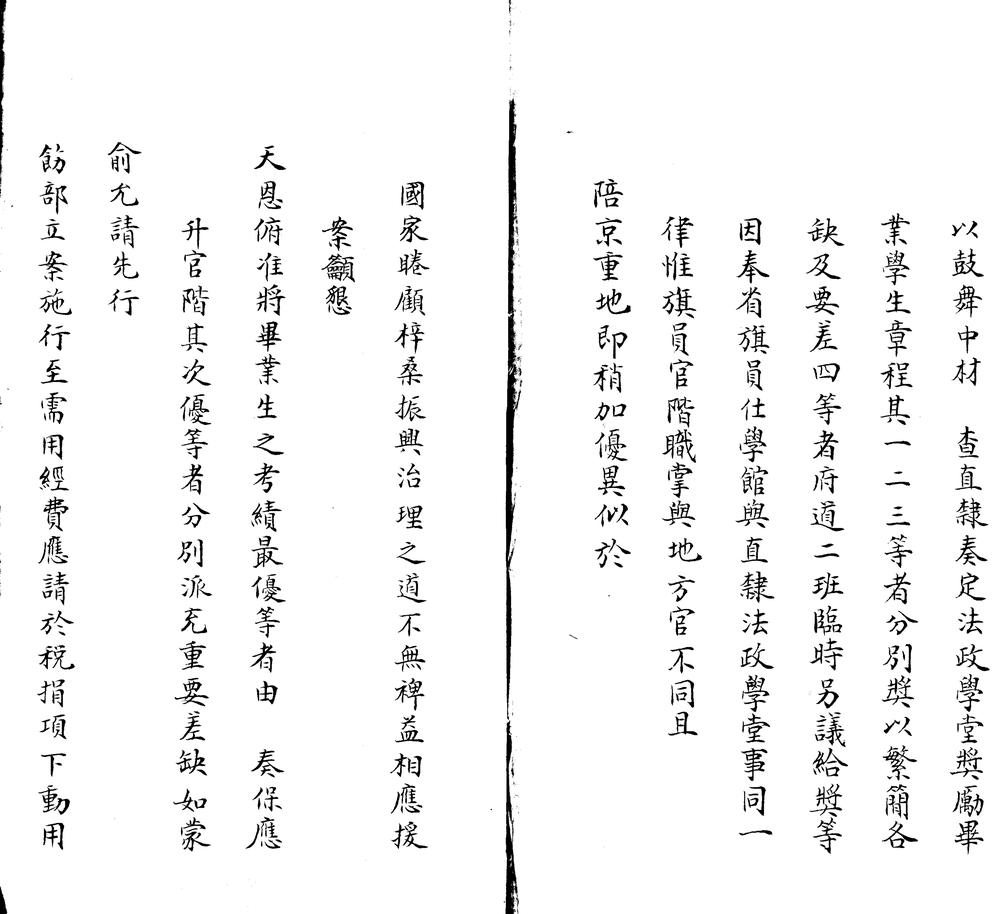 以鼓舞中材　查直隸奏定法政學堂獎勵畢
業學生章程其一二三等者分別獎以繁簡各
缺及要差四等者府道二班臨時另議給獎等
因奉省旗員仕學館與直隸法政學堂事同一
律惟旗員官階職掌與地方官不同且
陪京重地即稍加優異似於
國家睠顧梓桑振興治理之道不無裨益相應援
案籲懇
天恩俯准將畢業生之考績最優等者由　奏保應
升官階其次優等者分別派充重要差缺如蒙
俞允請先行
飭部立案施行至需用經費應請於税捐項下動用